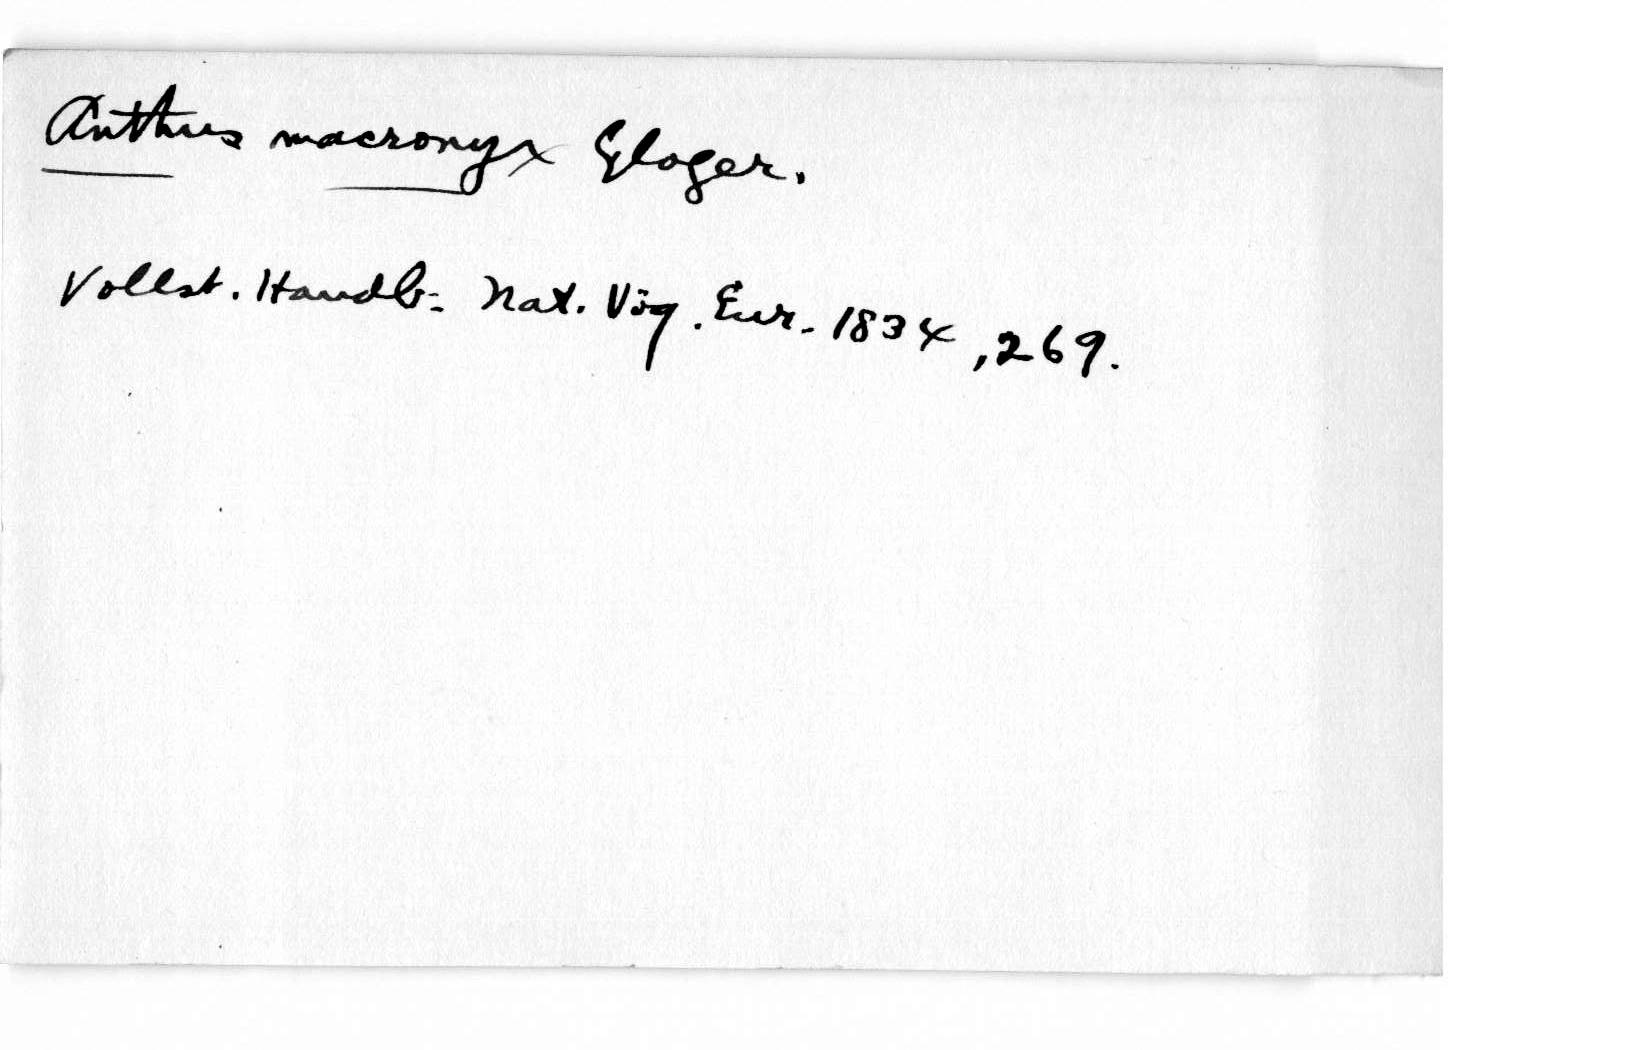 Anthus macronyx Gloger.
Vollst. Handb. Nat. Vög. Eur. 1834, 269.